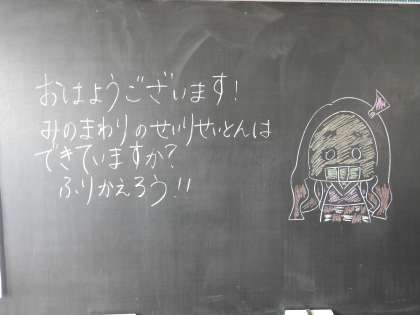 おはようございます!
みのまわりのせいりせいとんは
できていますか?
ふりかえろう!!